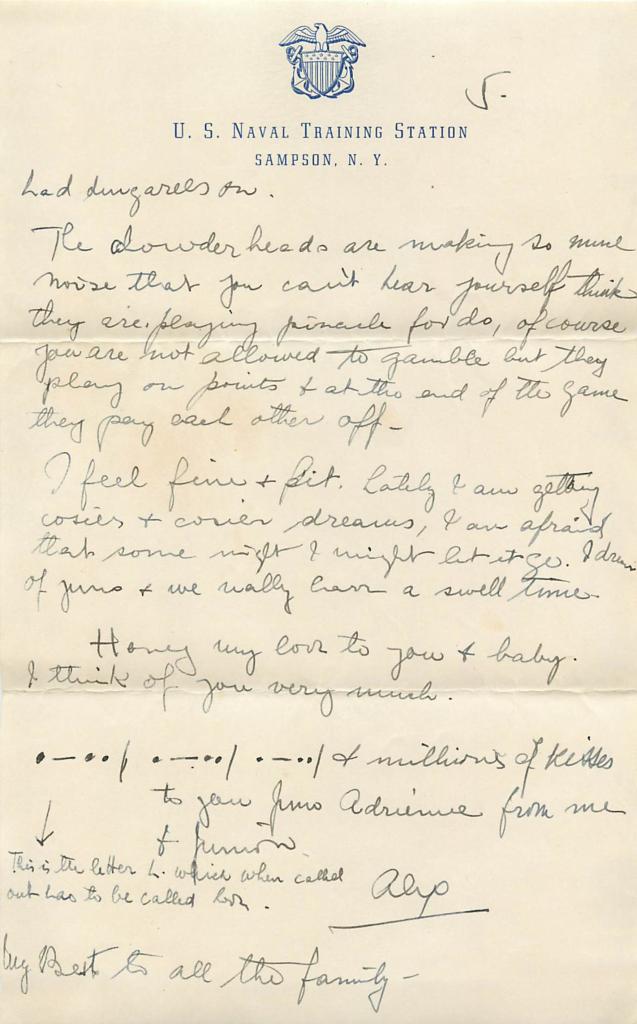 5.
U. S. NAVAL TRAINING STATION
SAMPSON, N. Y.
had dungarells on.
The chowder heads are making so much
noise that you can't hear yourself think
they are playing pinacle for do, of course
you are not allowed to gamble but they
play on points & at the end of the game
they pay each other off -
I feel fine & fit. Lately I am getting
cosier & cosier dreams, I am afraid
that some night I might let it go. I dream
of & we really have a swell time
Honey my love to you & baby.
I think of you very much.
•–••/ •–••/ •–••/ & millions of kisses
to you Adrienne from me
& Junior
This is the letter L. which when called
out has to be called love.
My Best to all the family -